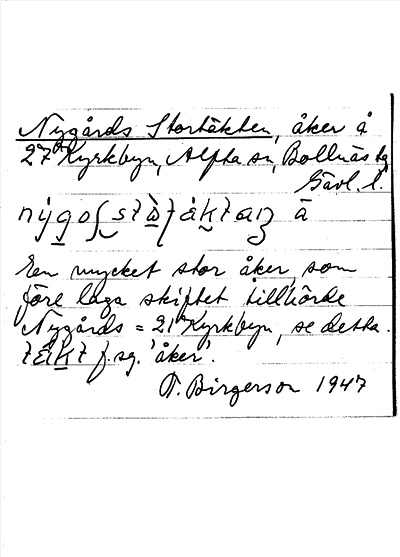 Nygårds Stortäkten, åker å
27 Kyrkbyn, Alfta sn, Bollnäs tg
Gävl. l.
En mycket stor åker, som
före laga skiftet tillhörde
Nygårds = 21 Kyrkbyn, se detta.
f. sg. 'åker'.
T. Birgerson 1947